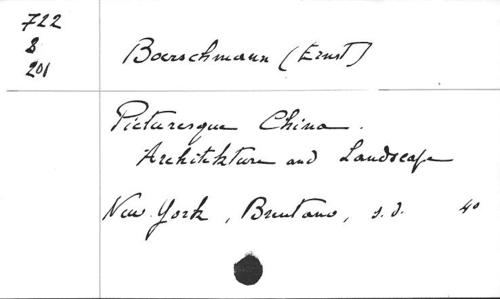 722
8
201
Boerschmann (Ernst)
Picturesque China.
Architekture and Landscape
New-York, Brentano, s.d. 4°